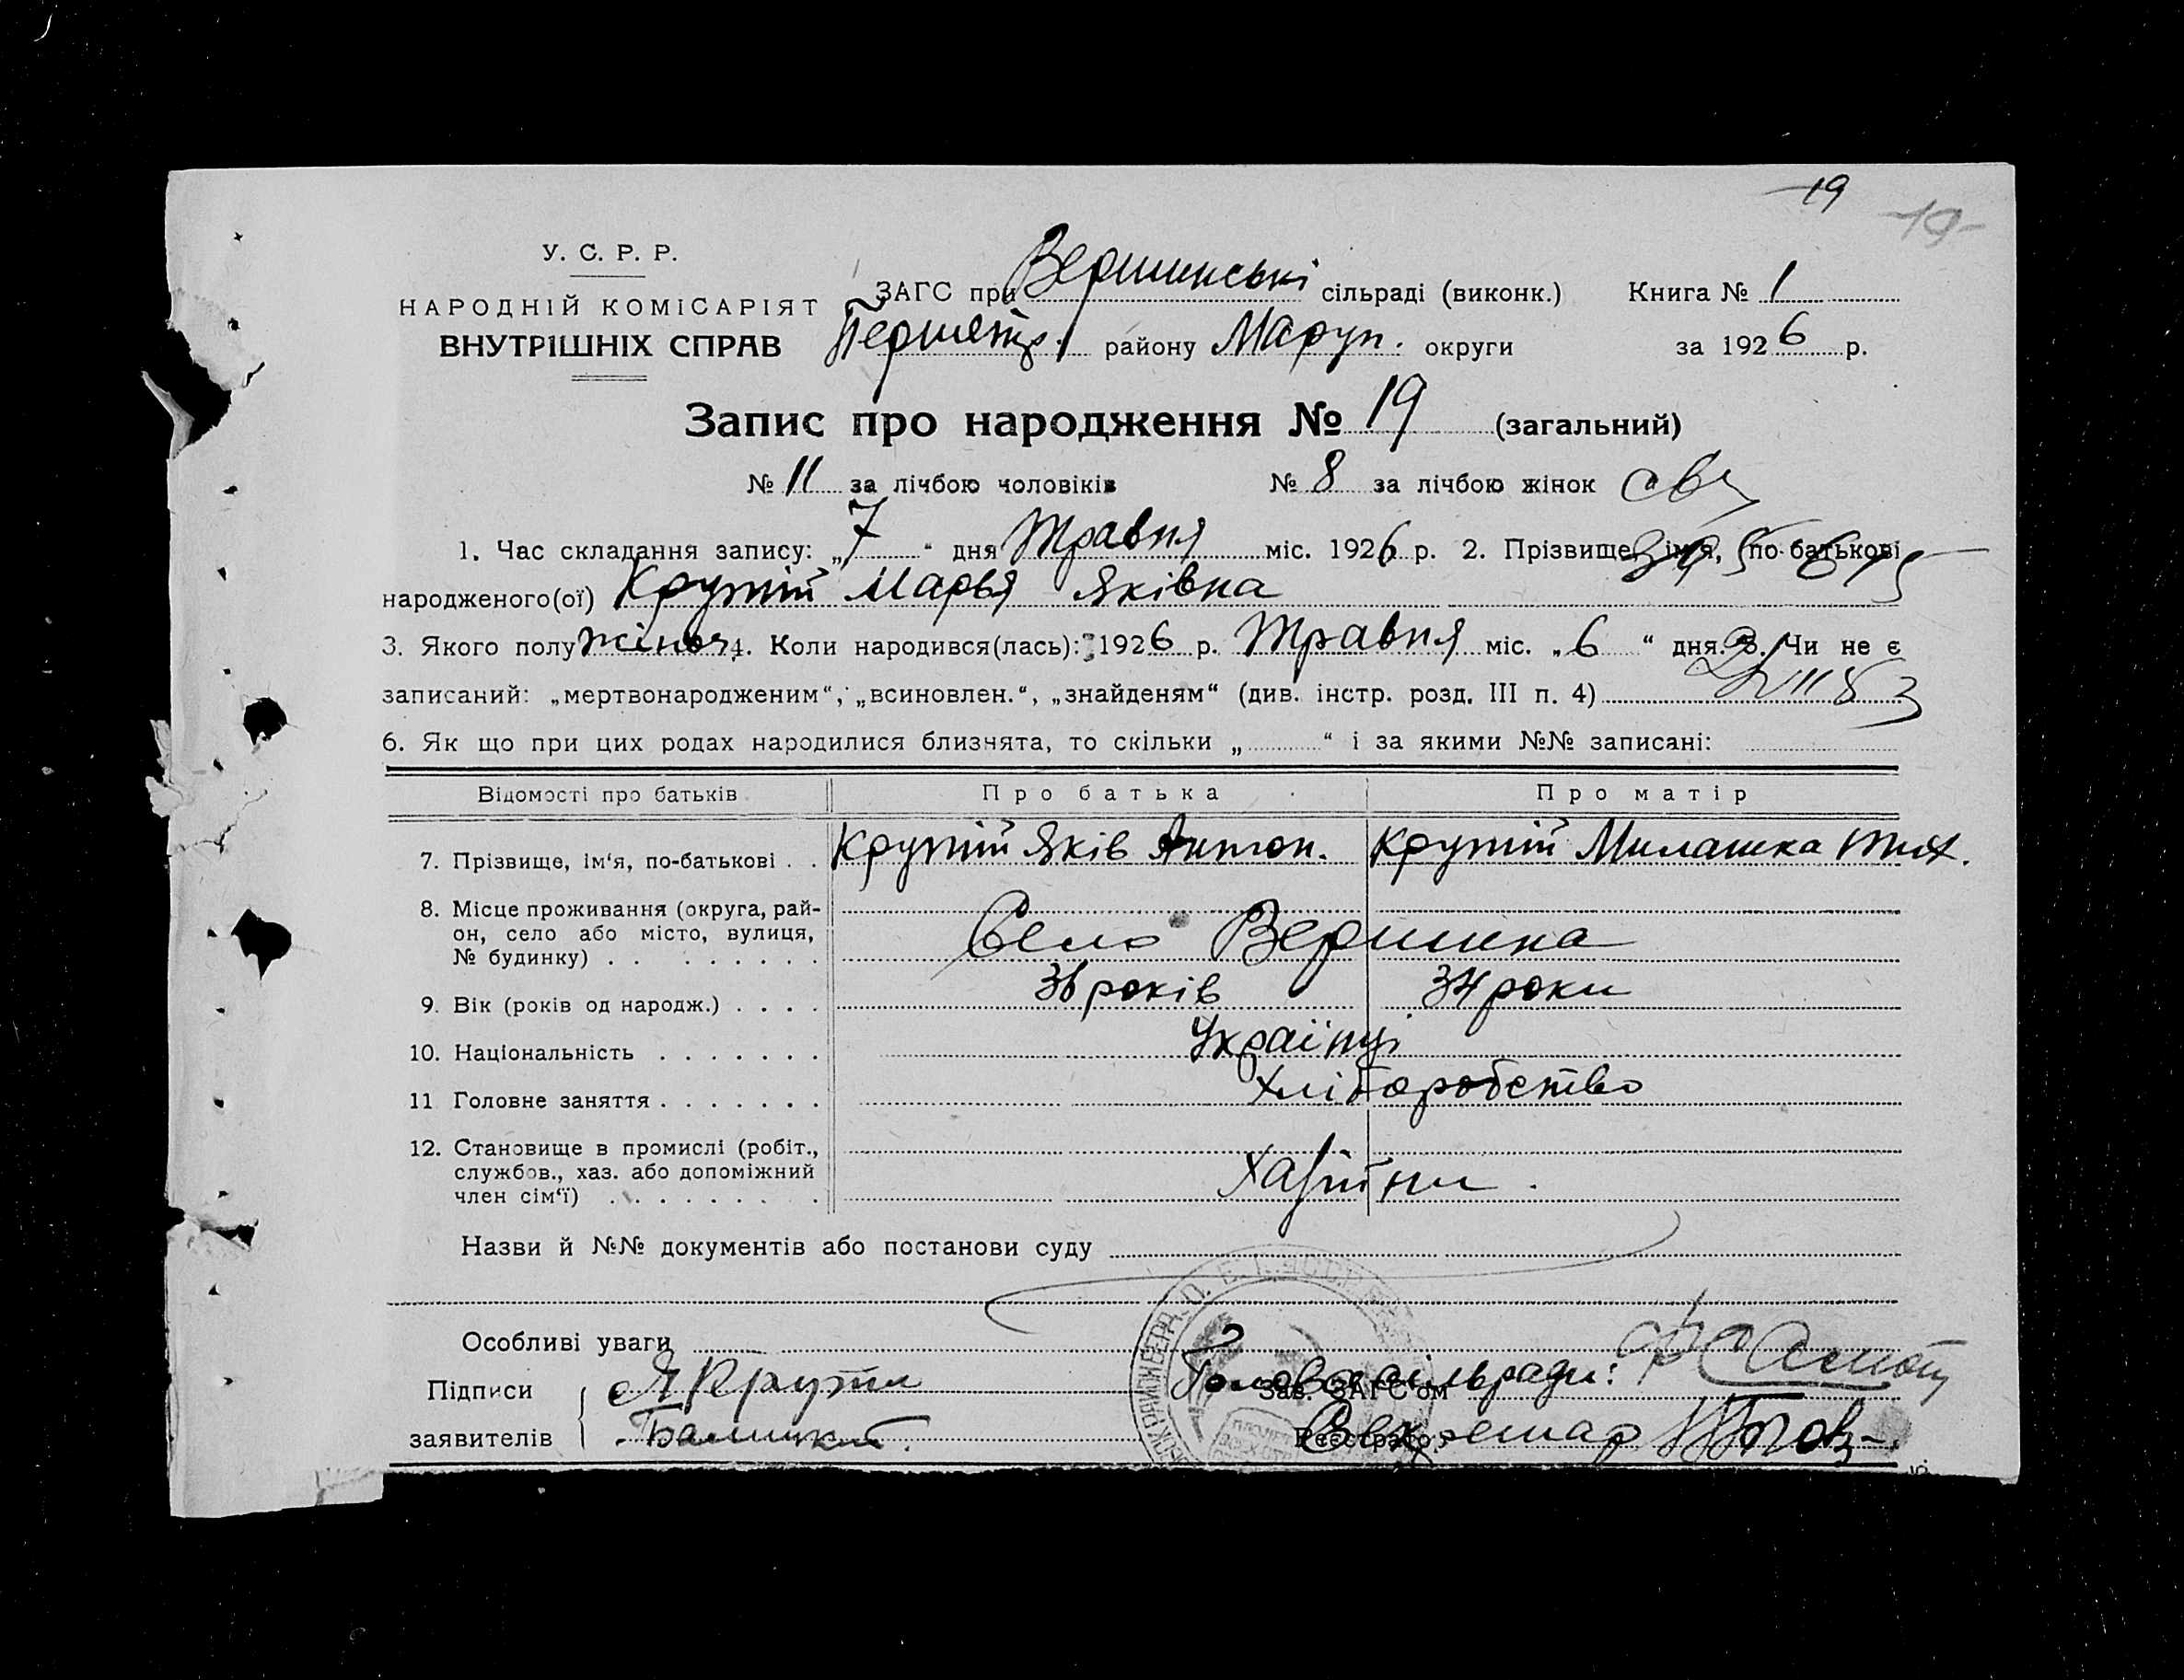 19
19
У. С. Р. Р.
ЗАГС при Вершинські сільраді (виконк.) Книга № 1
НАРОДНІЙ КОМІСАРІЯТ
ВНУТРІШНІХ СПРАВ району Маруп. округи за 1926 р.
Запис про народження № 19 (загальний)
№ 11 за лічбою чоловіків № 8 за лічбою жінок
1. Час складання запису: „7“ дня Травня міс. 1926 р. 2. Прізвище, ім'я, по-батькові
народженого(ої) Крутій Марья Яківна
3. Якого полу жіноч 4. Коли народився(лась): 1926 р. Травня міс. „6“ дня. 5. Чи не є
записаний: „мертвонародженим“, „всиновлен.“, „знайденям“ (див. інстр. розд. III п. 4)
6. Як що при цих родах народилися близнята, то скільки „ “ і за якими №№ записані:
Відомості про батьків Про батька Про матір
7. Прізвище, ім'я, по-батькові . . Крутій Яків Антон. Крутій Милашка Тих.
8. Місце проживання (округа, рай-
он, село або місто, вулиця, Село Вершина
№ будинку) . . . . . . . .
9. Вік (років од народж.) . . . . 36 років 34 роки
10. Національність . . . . . . . Українці
11 Головне заняття . . . . . . . Хліборобство
12. Становище в промислі (робіт.,
службов., хаз. або допоміжний Хазяїни.
член сім'ї) . . . . . . . .
Назви й №№ документів або постанови суду
Особливі уваги
Підписи Я Крутий Голова сільради:
Зав. ЗАГС'ом
заявителів Секретар
Реєстратор